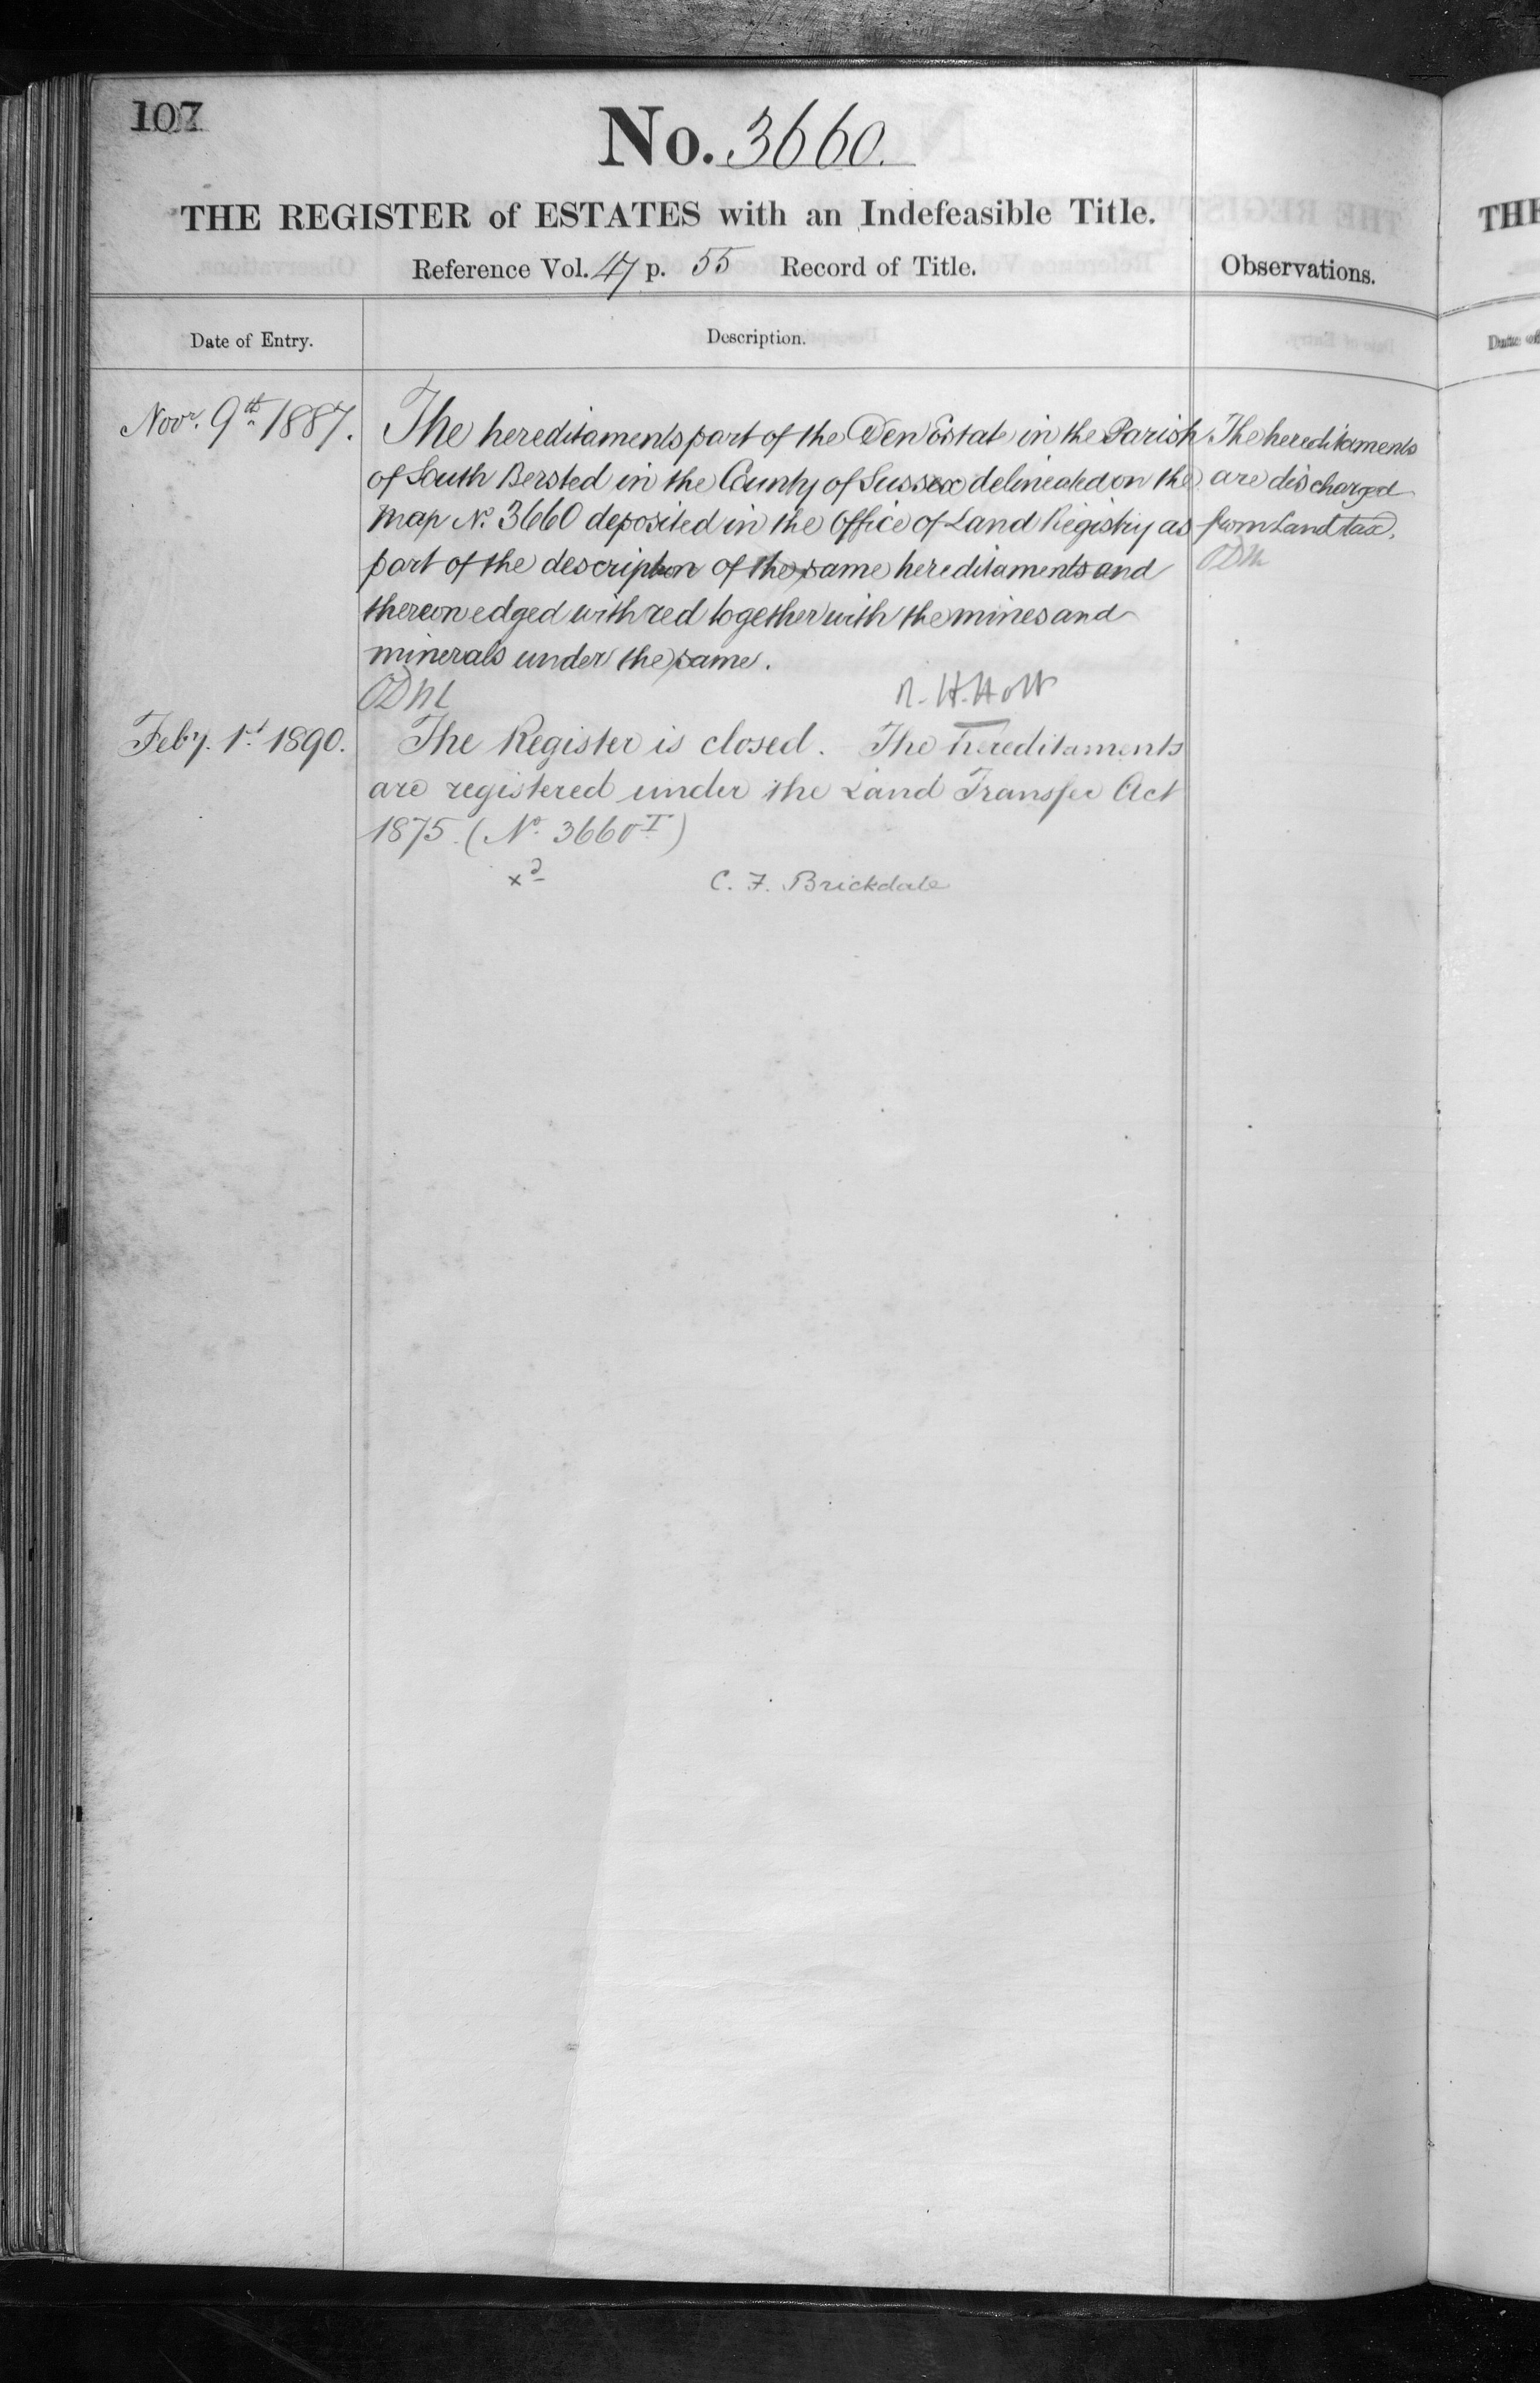 107
No. 3660.
THE REGISTER of ESTATES with an Indefeasible Title.
Reference Vol. 47 p. 55 Record of Title.
Observations.
Date of Entry.
Description.
Novr. 9th 1887.
The hereditaments part of the Den Estate in the Parish
of South Bersted in the County of Sussex delineated on the
map No. 3660 deposited in the Office of Land Registry as
part of the description of the same hereditaments and
thereon edged with red together with the mines and
minerals under the same.
R. H. Holt
The hereditaments
are discharged
from Land tax.
Feby. 1st 1890.
The Register is closed. The hereditaments
are registered under the Land Transfer Act
1875. (No. 3660 T)
xd
C. F. Brickdale
THE
Date of